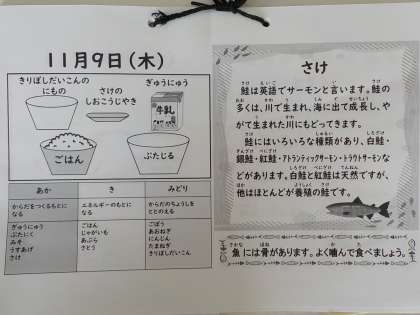 11月9日(木)
きりぼしだいこんの
にもの
さけの
しおこうじやき
ぎゅうにゅう
牛乳
ごはん
ぶたじる
あか
き
みどり
からだをつくるもとに
なる
エネルギーのもとに
なる
からだのちょうしを
ととのえる
ぎゅうにゅう
ぶたにく
みそ
うすあげ
さけ
ごはん
じゃがいも
あぶら
さとう
ごぼう
あおねぎ
にんじん
たまねぎ
きりぼしだいこん
さけ
鮭は英語でサーモンと言います。鮭の
多くは、川で生まれ、海に出て成長し、や
がて生まれた川にもどってきます。
鮭にはいろいろな種類があり、白鮭・
銀鮭・紅鮭・アトランティックサーモン・トラウトサーモンな
どがあります。白鮭と紅鮭は天然ですが、
他はほとんどが養殖の鮭です。
魚には骨があります。よく噛んで食べましょう。